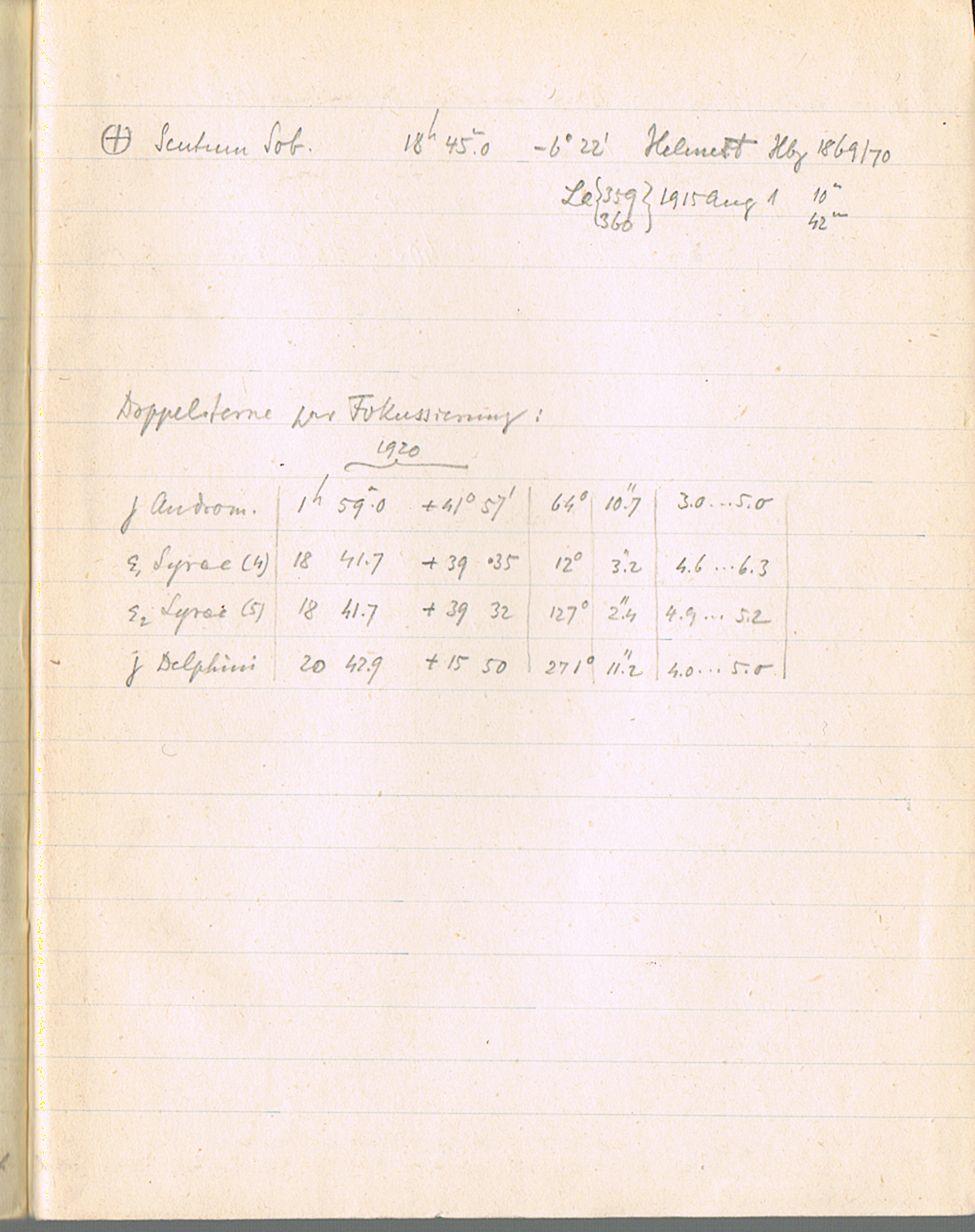 ⊕ Scutum Sob. 18ʰ 45ᵐ.0 -6° 22' Helmert Hbg 1869/70
La {359 360} 1915 Aug 1 10ᵐ 42ᵐ
Doppelsterne zur Fokussierung:
1920
γ Androm. 1ʰ 59ᵐ.0 +41° 57' 64° 10".7 3.0...5.0
ε₁ Lyrae (4) 18 41.7 +39 35 12° 3".2 4.6...6.3
ε₂ Lyrae (5) 18 41.7 +39 32 127° 2".4 4.9...5.2
γ Delphini 20 42.9 +15 50 271° 11".2 4.0...5.0